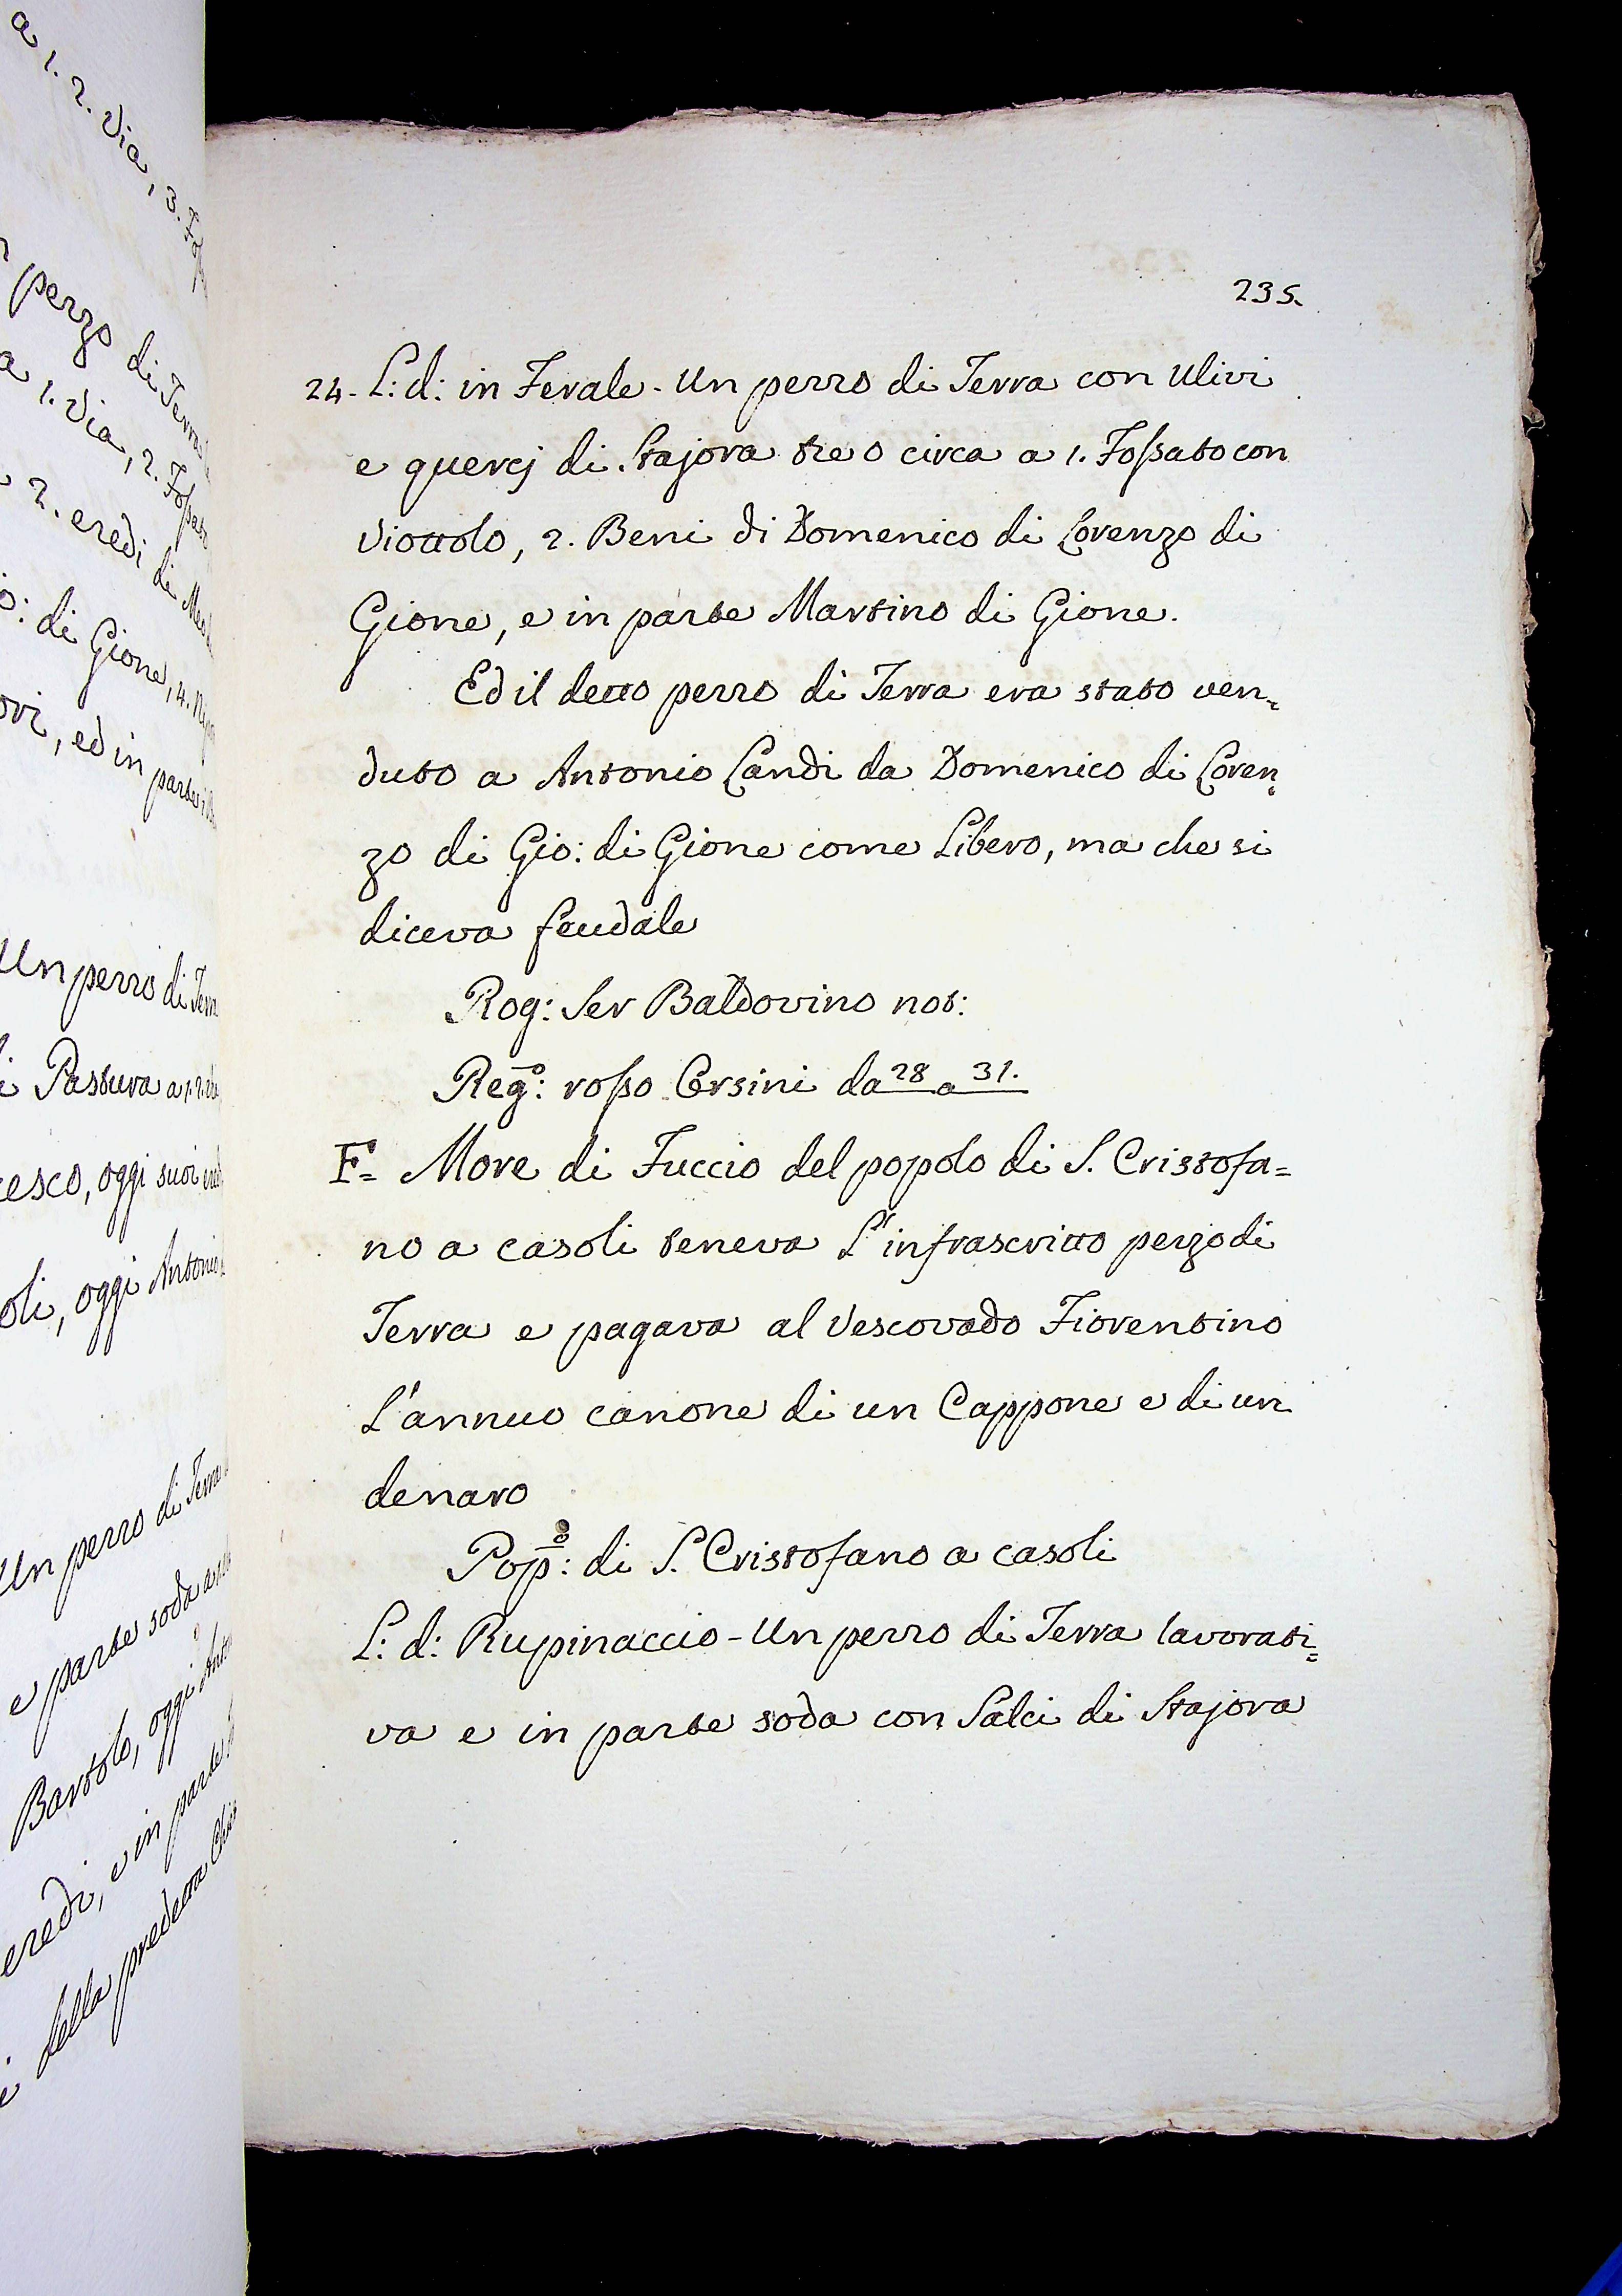 235.
24. L: d: in Ferale. Un pezzo di Terra con Ulivi
e quercj di Stajora tre o circa a 1. Fossato con
Viottolo, 2. Beni di Domenico di Lorenzo di
Gione, e in parte Martino di Gione.
Ed il detto pezzo di Terra era stato ven=
duto a Antonio Landi da Domenico di Loren=
zo di Gio: di Gione come Libero, ma che si
diceva feudale
Rog: Ser Baldovino not:
Reg.o: rosso Corsini da 28 a 31.
F= More di Fuccio del popolo di S. Cristofa=
no a casoli teneva L'infrascritto pezzo di
Terra e pagava al Vescovado Fiorentino
L'annuo canone di un Cappone e di un
denaro
Pop.o: di S. Cristofano a casoli
L: d: Rupinaccio - Un pezzo di Terra lavorati=
va e in parte soda con Salci di Stajora
a 1. 2. Via, 3.
pezzo di Terra
a 1. Via, 2. Fossato
2. eredi di
di Gione, 4.
ed in parte
Un pezzo di Terra
Pastura a 1. 2.
oggi suoi
oggi Antonio
Un pezzo di Terra
e parte soda a
Bartolo, oggi
eredi, e in parte
della predetta